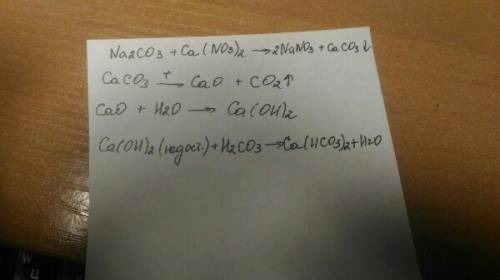 Na2CO3 + Ca(NO3)2 → 2NaNO3 + CaCO3↓
CaCO3 →(t) CaO + CO2↑
CaO + H2O → Ca(OH)2
Ca(OH)2 (недост.) + H2CO3 → Ca(HCO3)2 + H2O